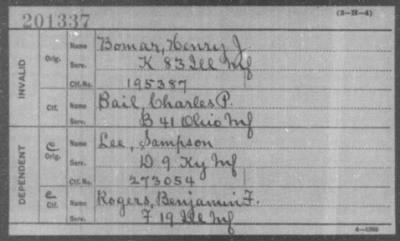 201337 (3-H-4)
INVALID
Orig. Name Bomar, Henry J.
Serv. K 83 Ill Inf
Ctf. No. 195387
Ctf. Name Bail, Charles P.
Serv. B 41 Ohio Inf
DEPENDENT
C Orig. Name Lee, Sampson
Serv. D 9 Ky Inf
Ctf. No. 273054
C Ctf. Name Rogers, Benjamin F.
Serv. F 19 Ill Inf